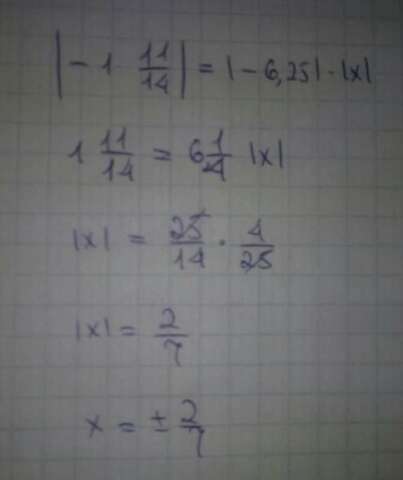 |-1 11/14| = |-6,25| · |x|
1 11/14 = 6 1/4 |x|
|x| = 25/14 · 4/25
|x| = 2/7
x = ± 2/7